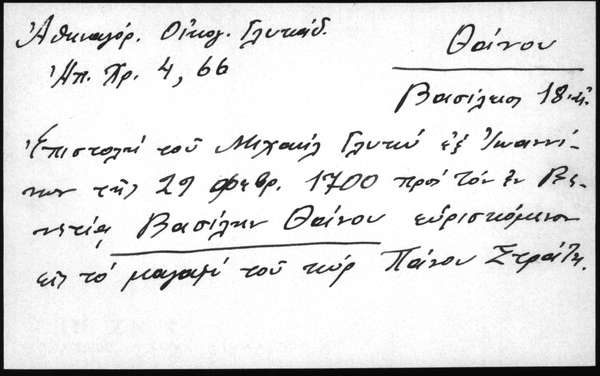 Ἀθηναγόρ. Οἰκογ. Γλυκάδ.
Θάνου
Ἠπ. Χρ. 4, 66
Βασίλειος 18 αἰ.
Ἐπιστολὴ τοῦ Μιχαὴλ Γλυκύ ἐξ Ἰωαννί-
νων τῆς 29 φεβρ. 1700 πρὸς τὸν ἐν Βε-
νετίᾳ Βασίλην Θάνου εὑρισκόμενον
εἰς τὸ μαγαζὶ τοῦ κὺρ Πάνου Στράτη.